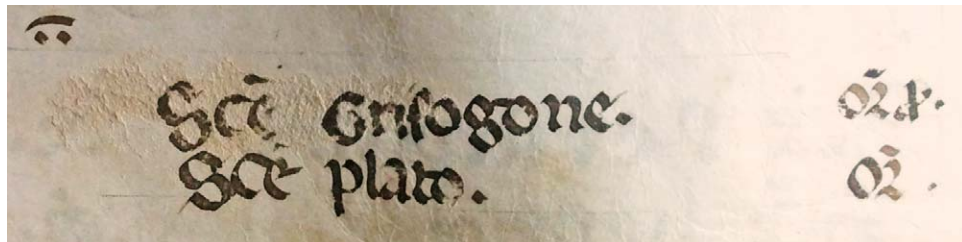 Sc̄e Griſogone. or̄
Sc̄e plato. or̄.